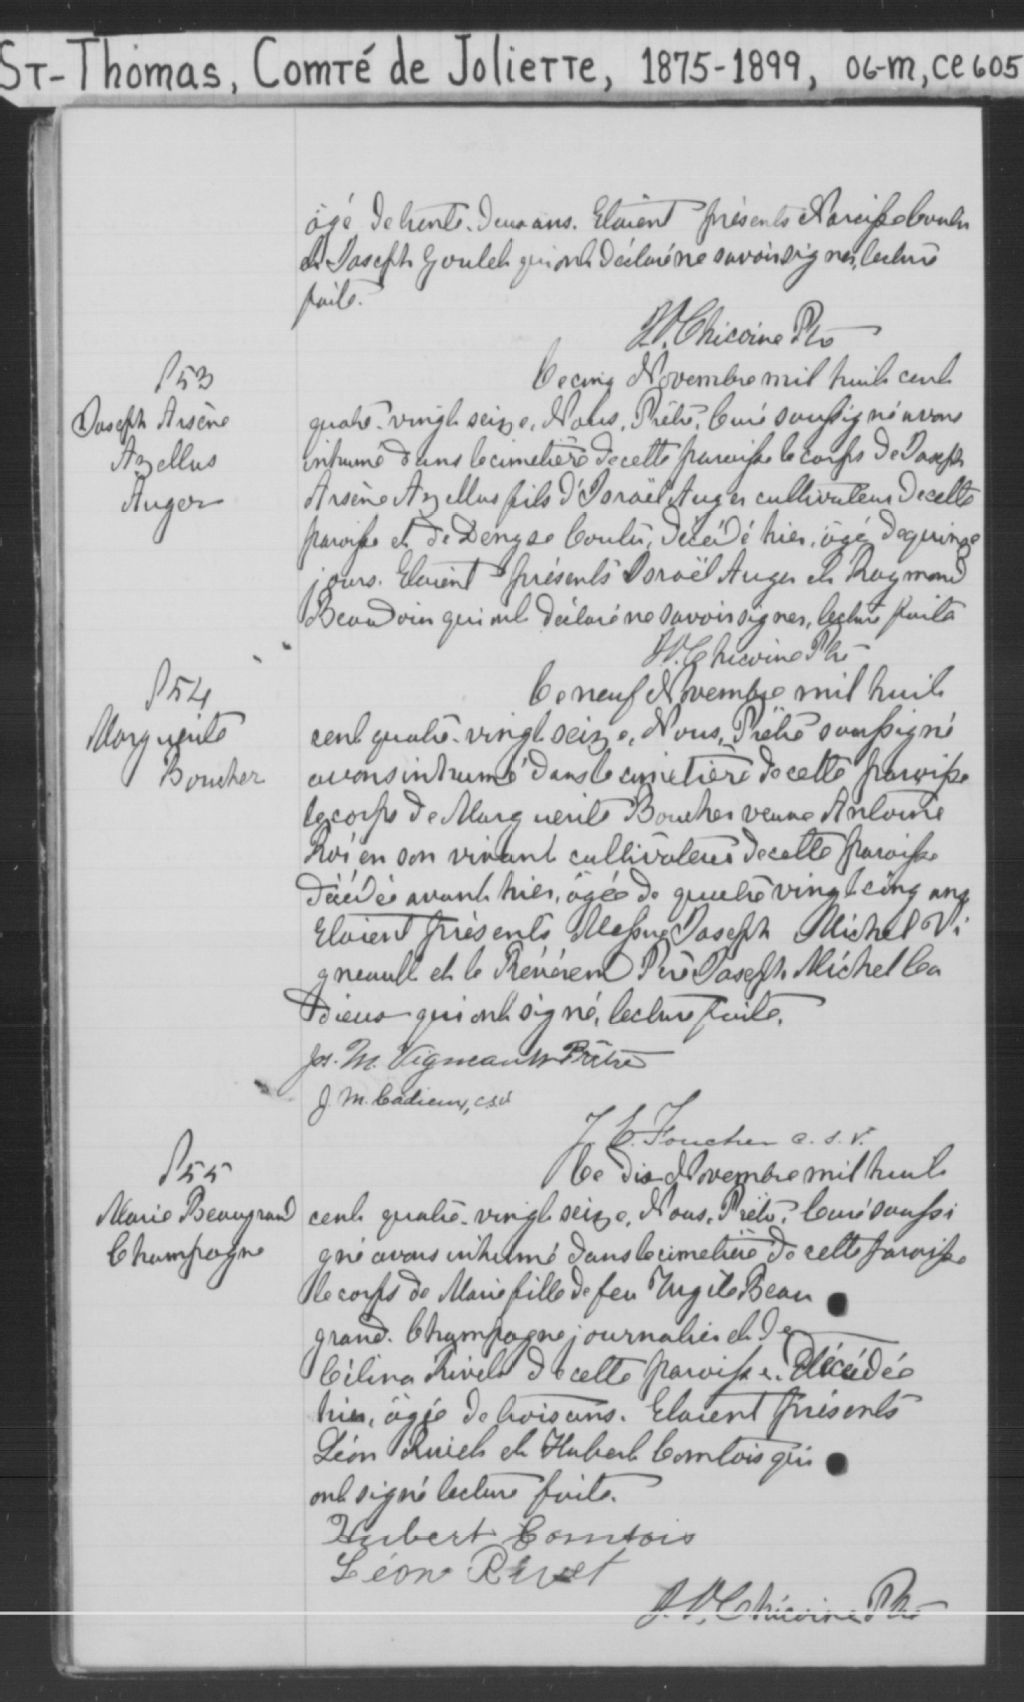 St-Thomas, Comté de Joliette, 1875-1899, 06-M, CE605
âgé de trente-deux ans. Etaient présents Narcisse Coutu
et Joseph Goulet qui ont déclaré ne savoir signer, lecture
faite.
Chicoine Ptre
S53
Joseph Arsène
Azellus
Auger
Le cinq Novembre mil huit cent
quatre-vingt seize, Nous, Prêtre, Curé soussigné avons
inhumé dans le cimetière de cette paroisse le corps de Joseph
Arsène Azellus fils d'Israël Auger cultivateur de cette
paroisse et de Denyse Coutu, décédé hier, âgé de quinze
jours. Etaient présents Israël Auger et Raymond
Beaudoin qui ont déclaré ne savoir signer, lecture faite
Chicoine Ptre
S54
Marguerite
Boucher
Le neuf Novembre mil huit
cent quatre-vingt seize, Nous, Prêtre soussigné
avons inhumé dans le cimetière de cette paroisse
le corps de Marguerite Boucher veuve Antoine
Roi en son vivant cultivateur de cette paroisse
décédée avant hier, âgée de quatre vingt cinq ans
Etaient présents Messire Joseph Michel Vi
gneault et le Révérend Père Joseph Michel Ca
dieux qui ont signé, lecture faite.
Jos. M. Vigneault Prêtre
J. M. Cadieux, csv
J. C. Foucher c. s. v.
S55
Marie Beaugrand
Champagne
Le dix Novembre mil huit
cent quatre-vingt seize, Nous, Prêtre, Curé soussi
gné avons inhumé dans le cimetière de cette paroisse
le corps de Marie fille de feu Beau
grand. Champagne journalier et de
Célina Rivet de cette paroisse. Décédée
hier, âgée de trois ans. Etaient présents
Léon Rivet et Hubert Comtois qui
ont signé lecture faite.
Hubert Comtois
Léon Rivet
Chicoine Ptre